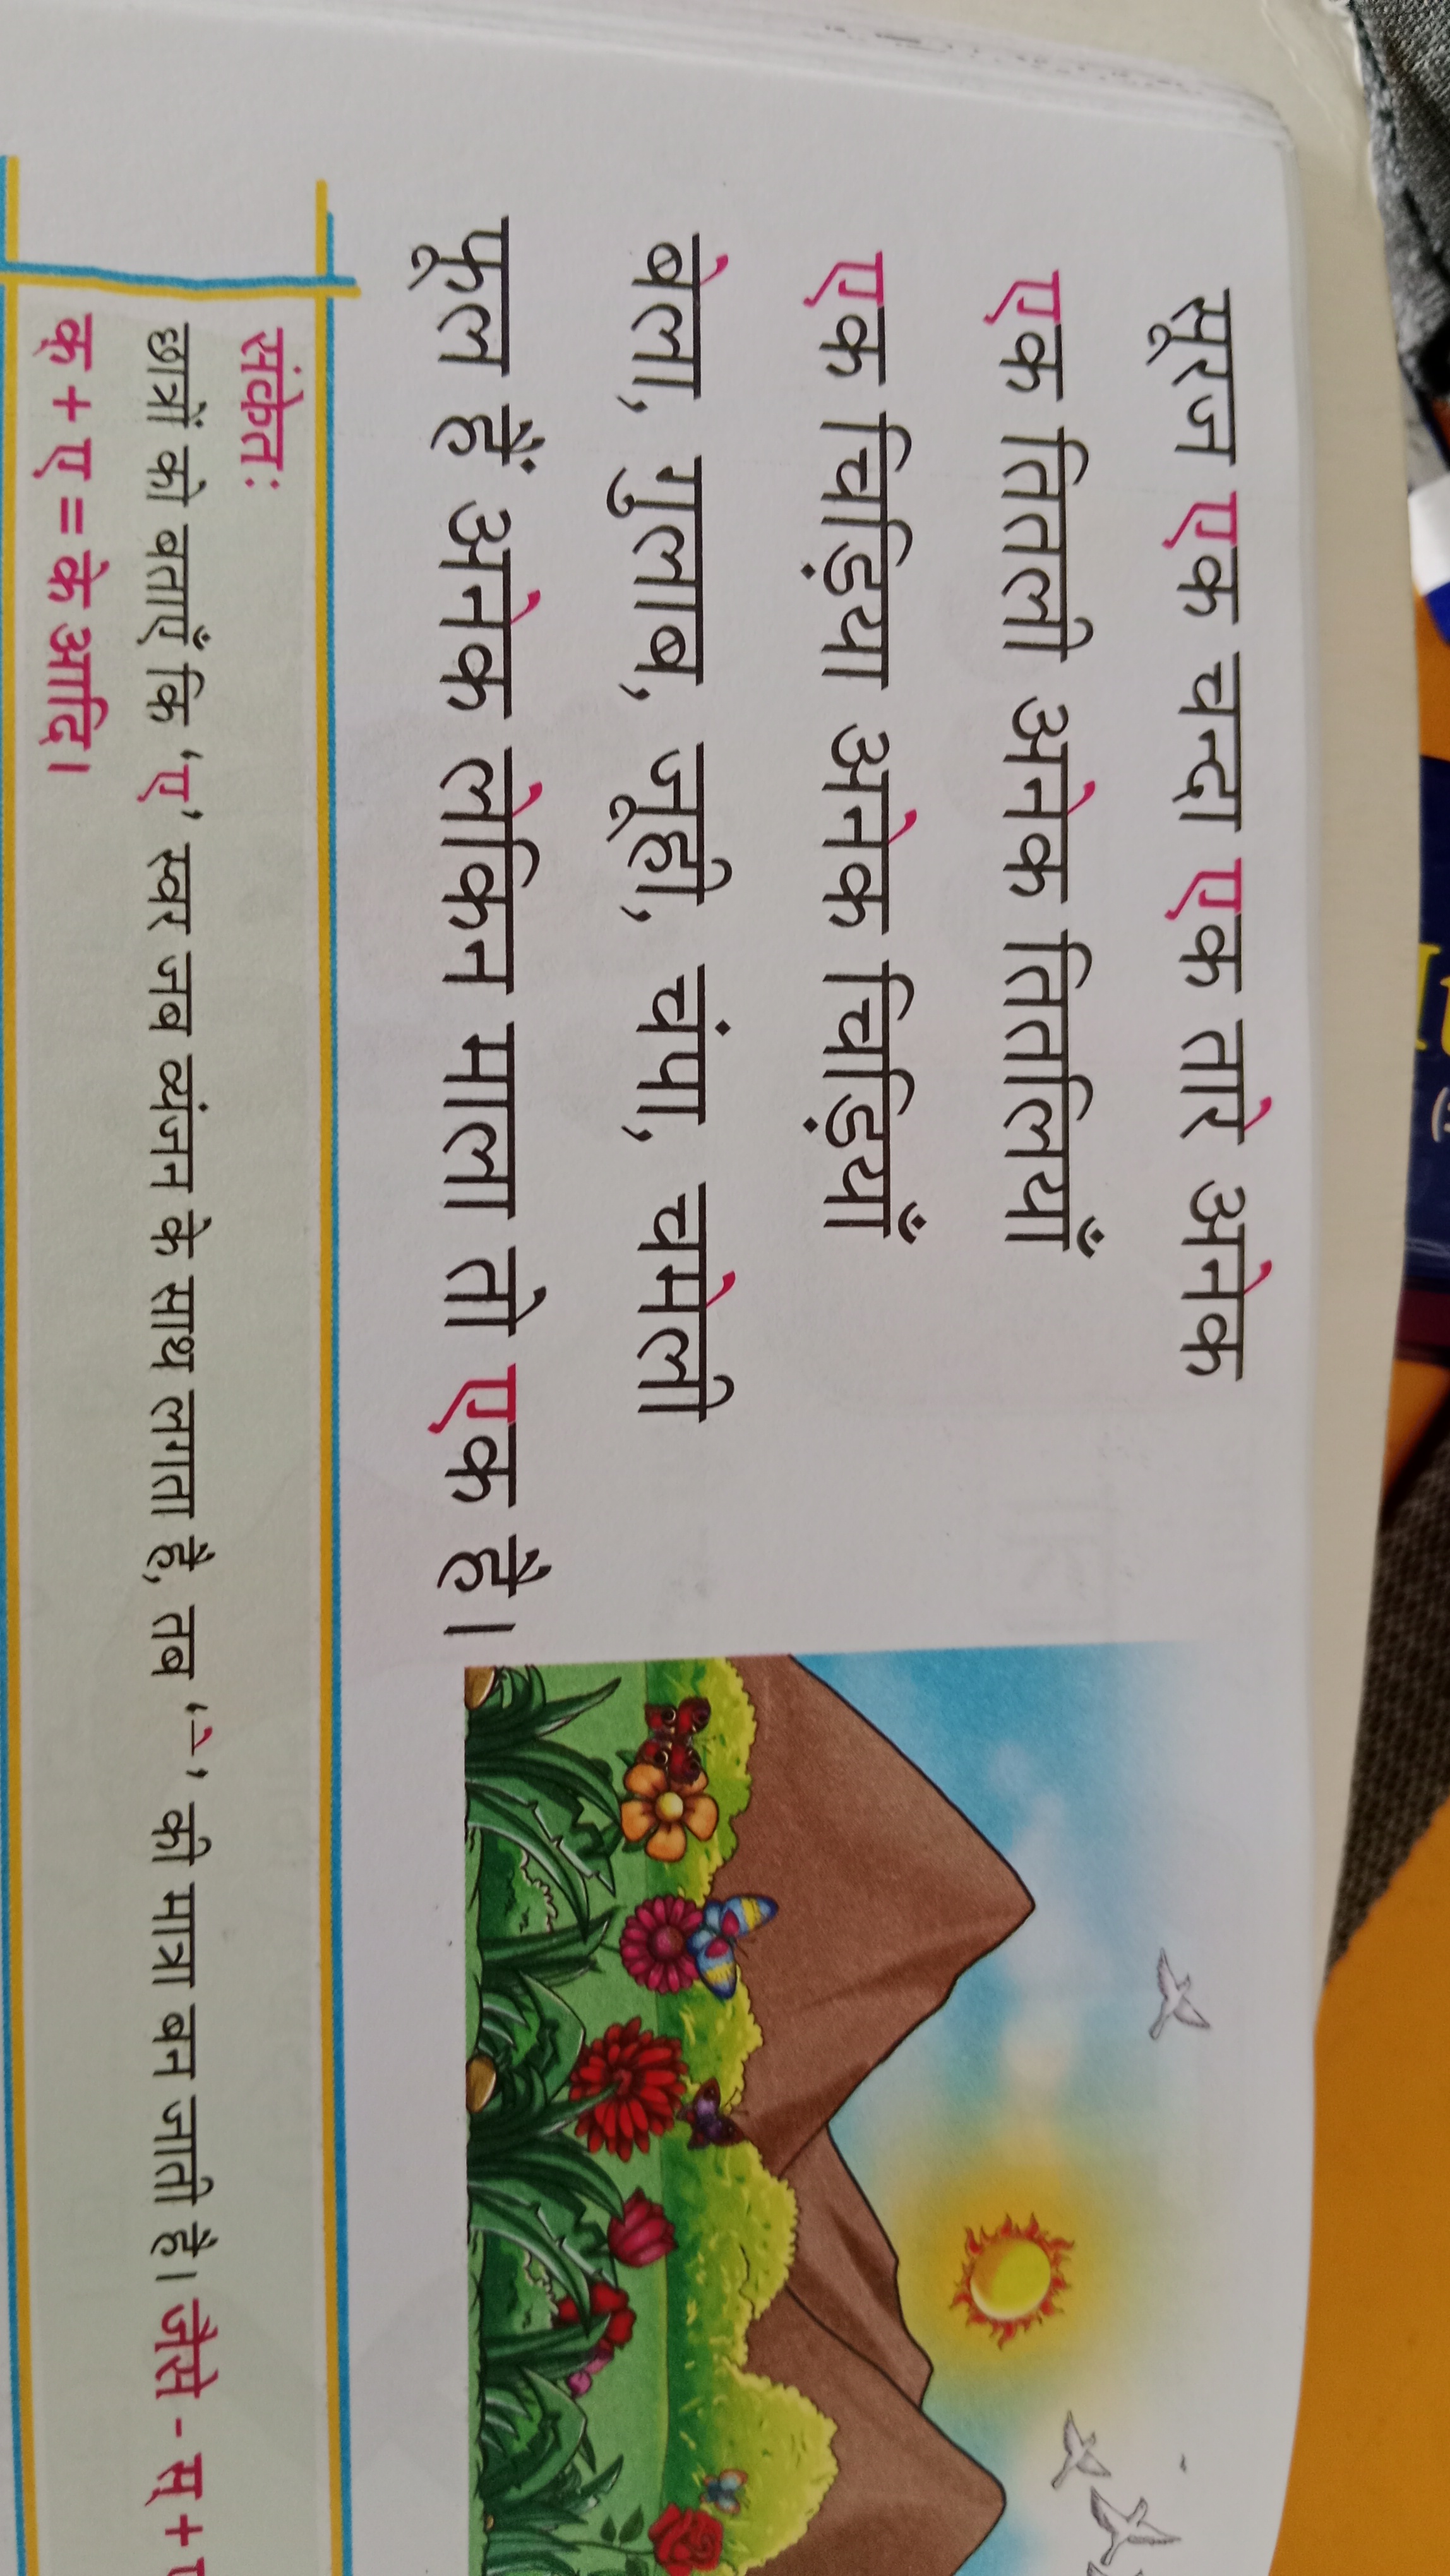 सूरज एक चन्दा एक तारे अनेक
एक तितली अनेक तितलियाँ
एक चिड़िया अनेक चिड़ियाँ
बेला, गुलाब, जूही, चंपा, चमेली
फूल हैं अनेक लेकिन माला तो एक है।
संकेत:
छात्रों को बताएँ कि ‘ए’ स्वर जब व्यंजन के साथ लगता है, तब ‘े’ की मात्रा बन जाती है। जैसे - स् +
क् + ए = के आदि।